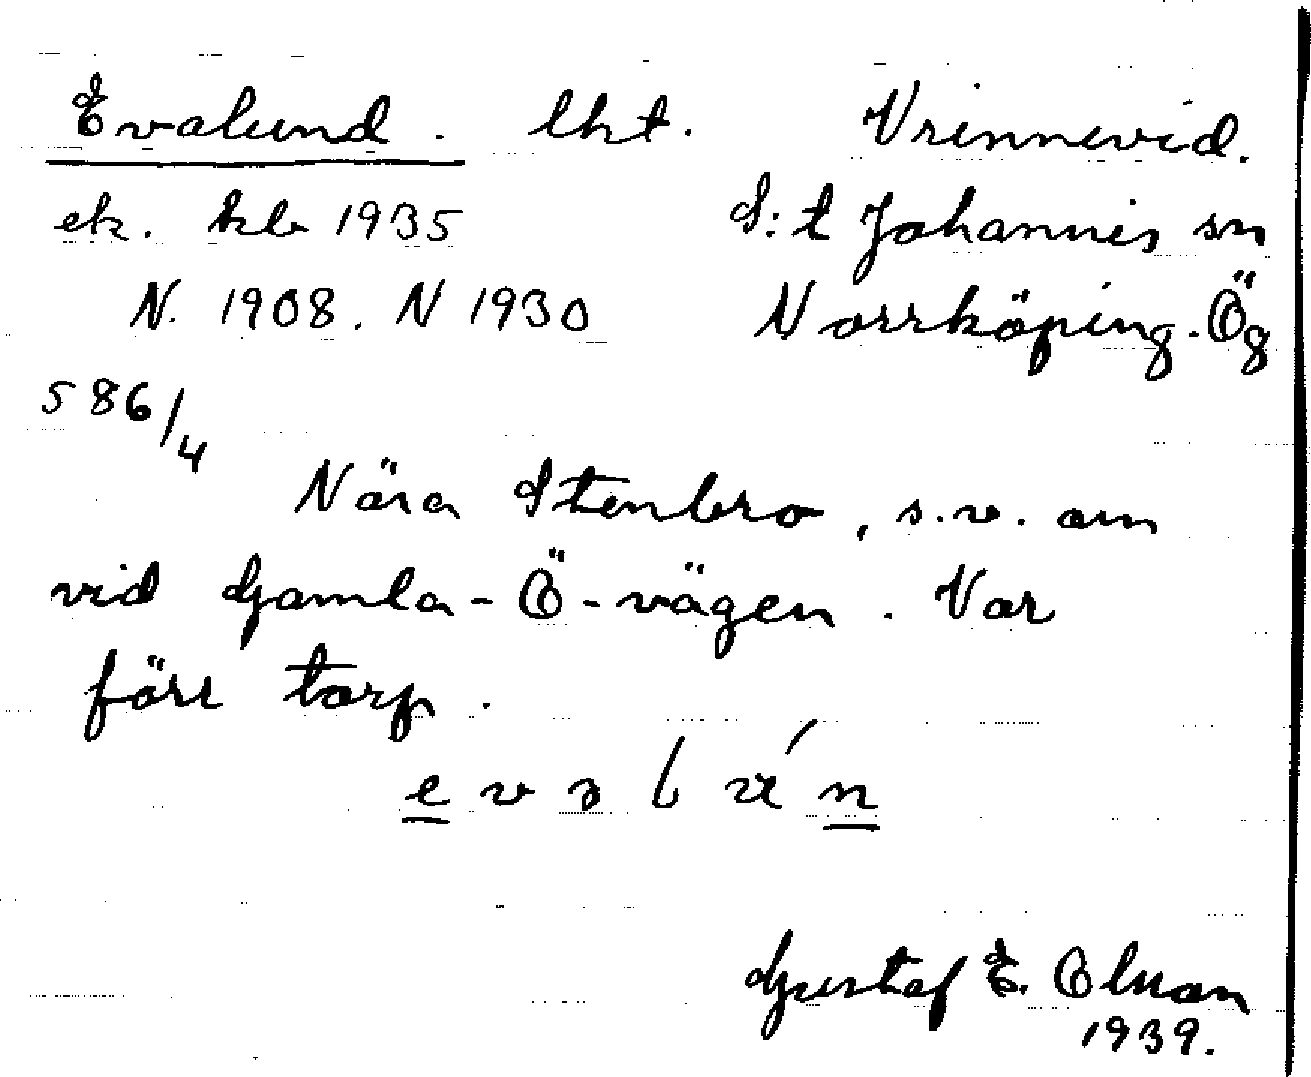 Evalund. lht. Vrinnevid.
ek. kbl 1935 S:t Johannis sn
N. 1908. N 1930 Norrköping. Ög
586/4
Nära Stenbro, s.v. om
vid Gamla-Ö-vägen. Var
förr torp.
Gustaf E. Olman
1939.